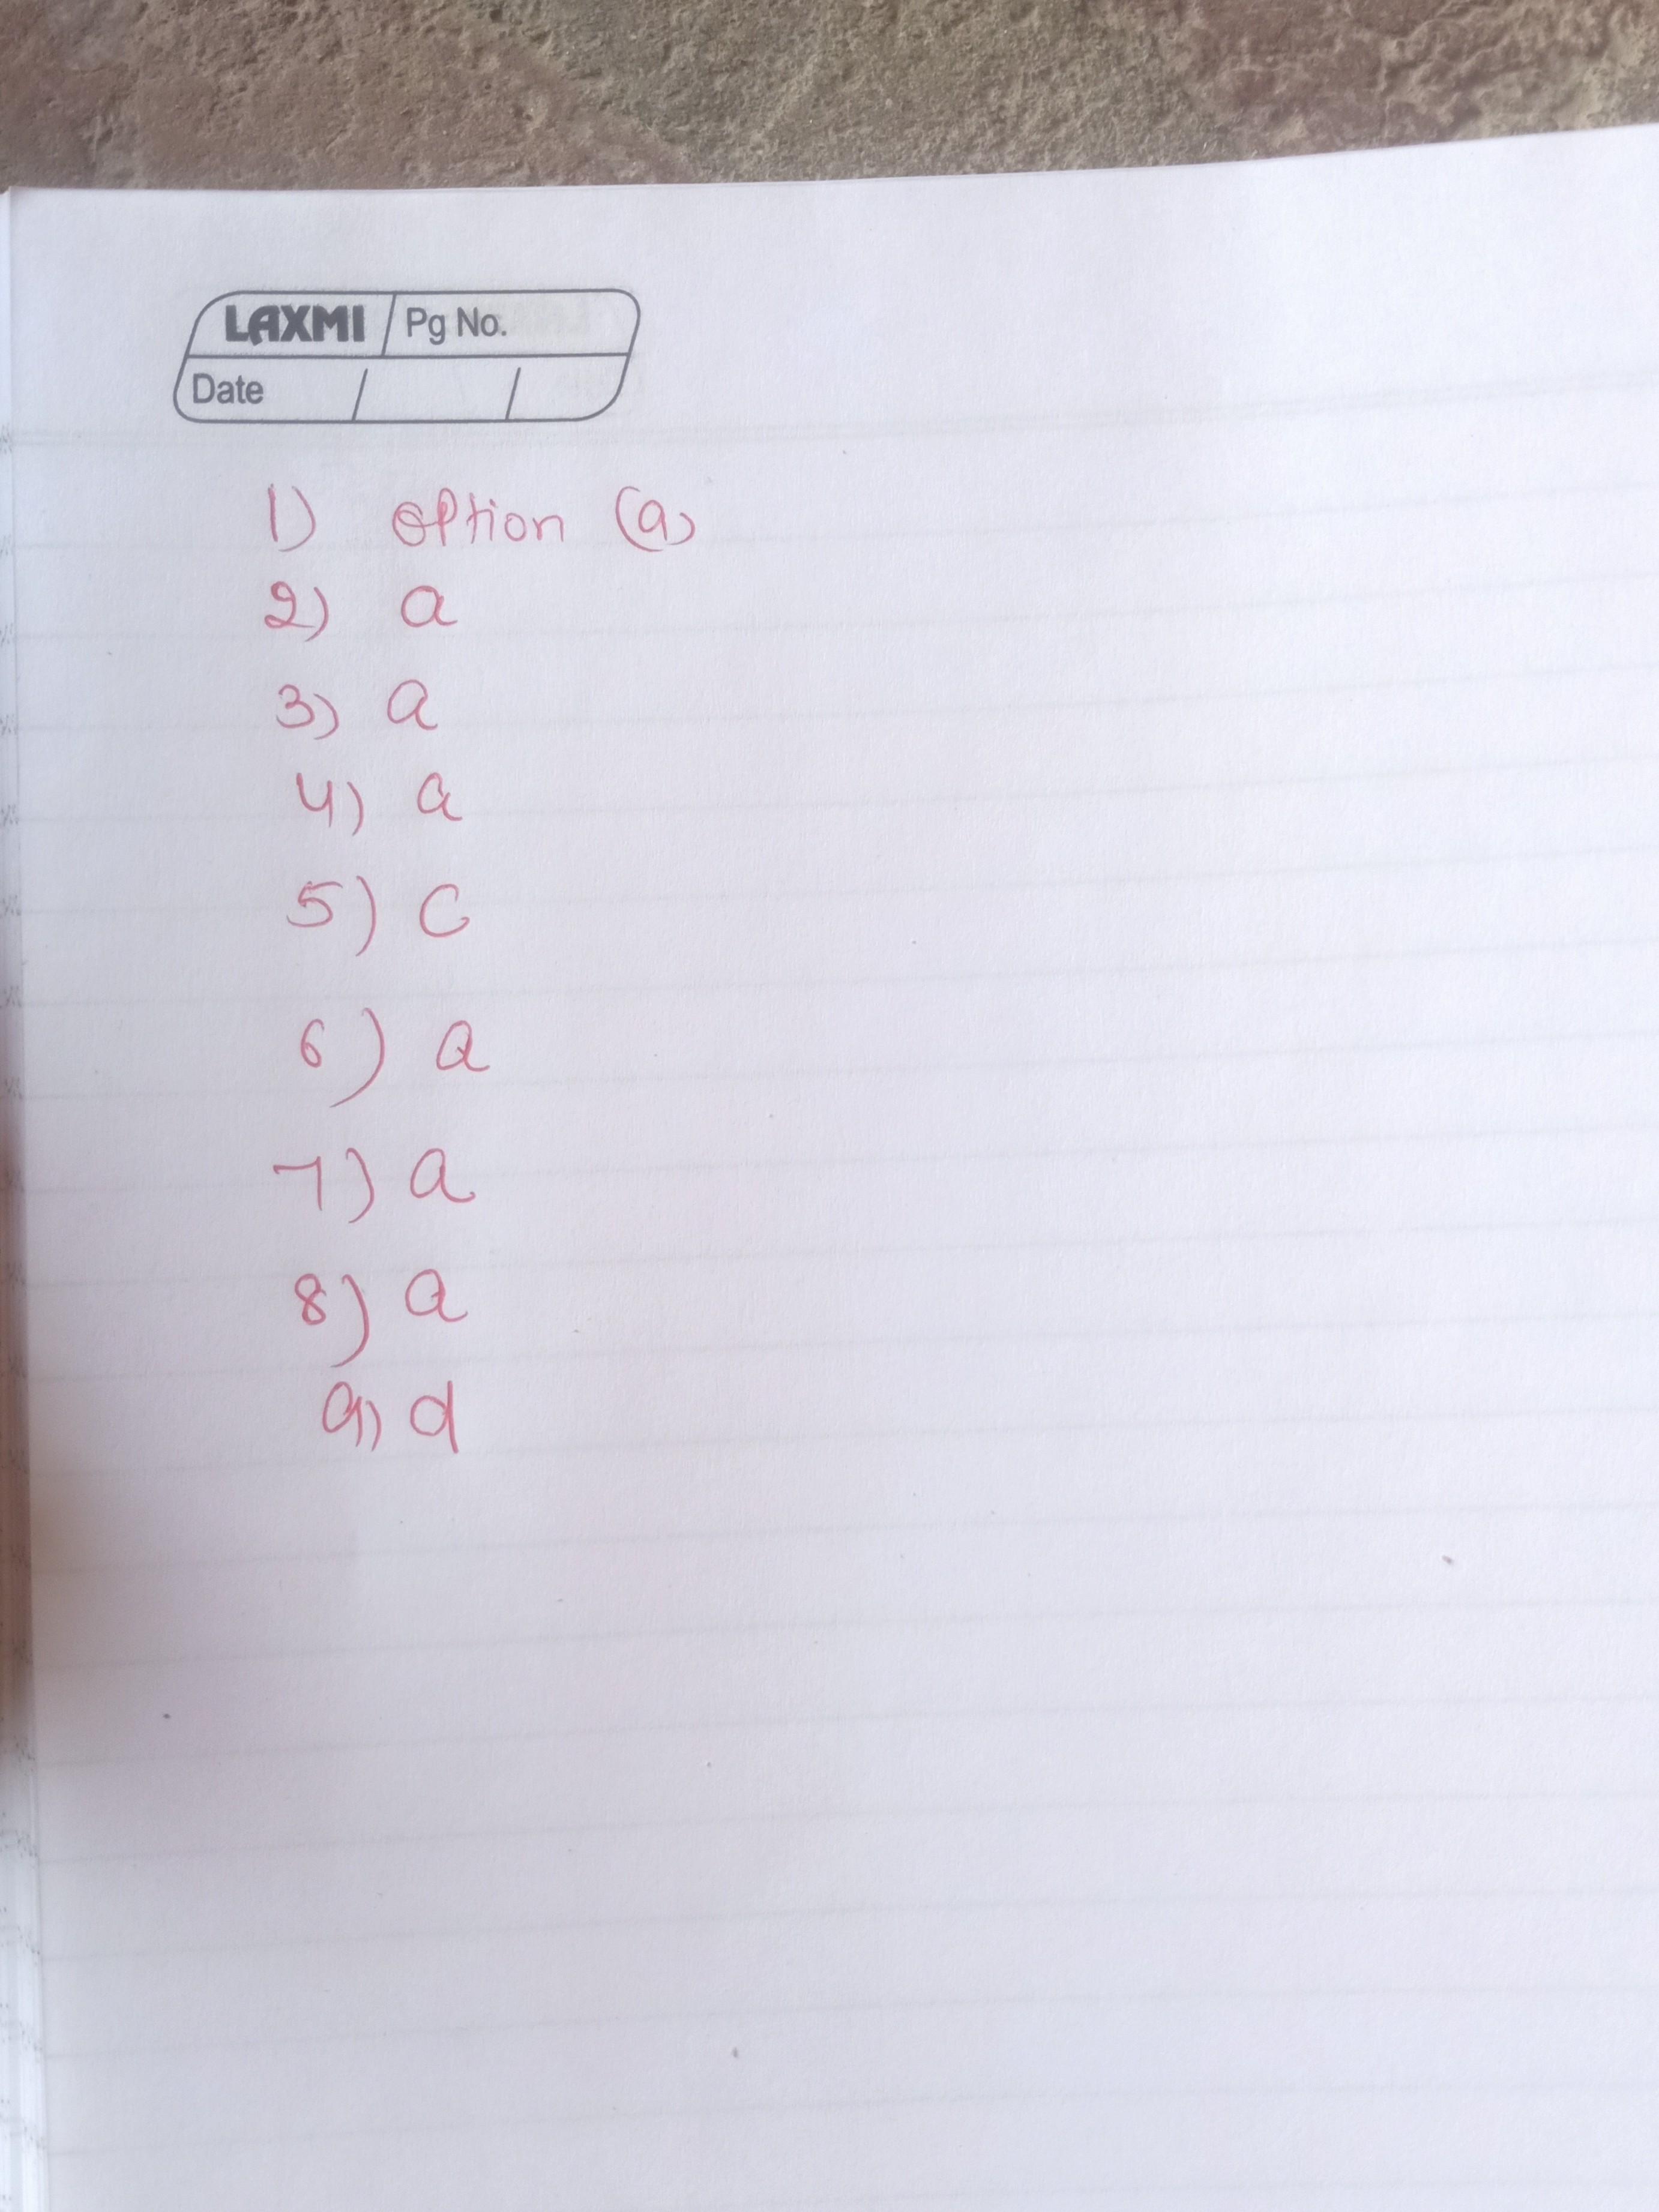 LAXMI Pg No.
Date / /
1) option (a)
2) a
3) a
4) a
5) c
6) a
7) a
8) a
9) d